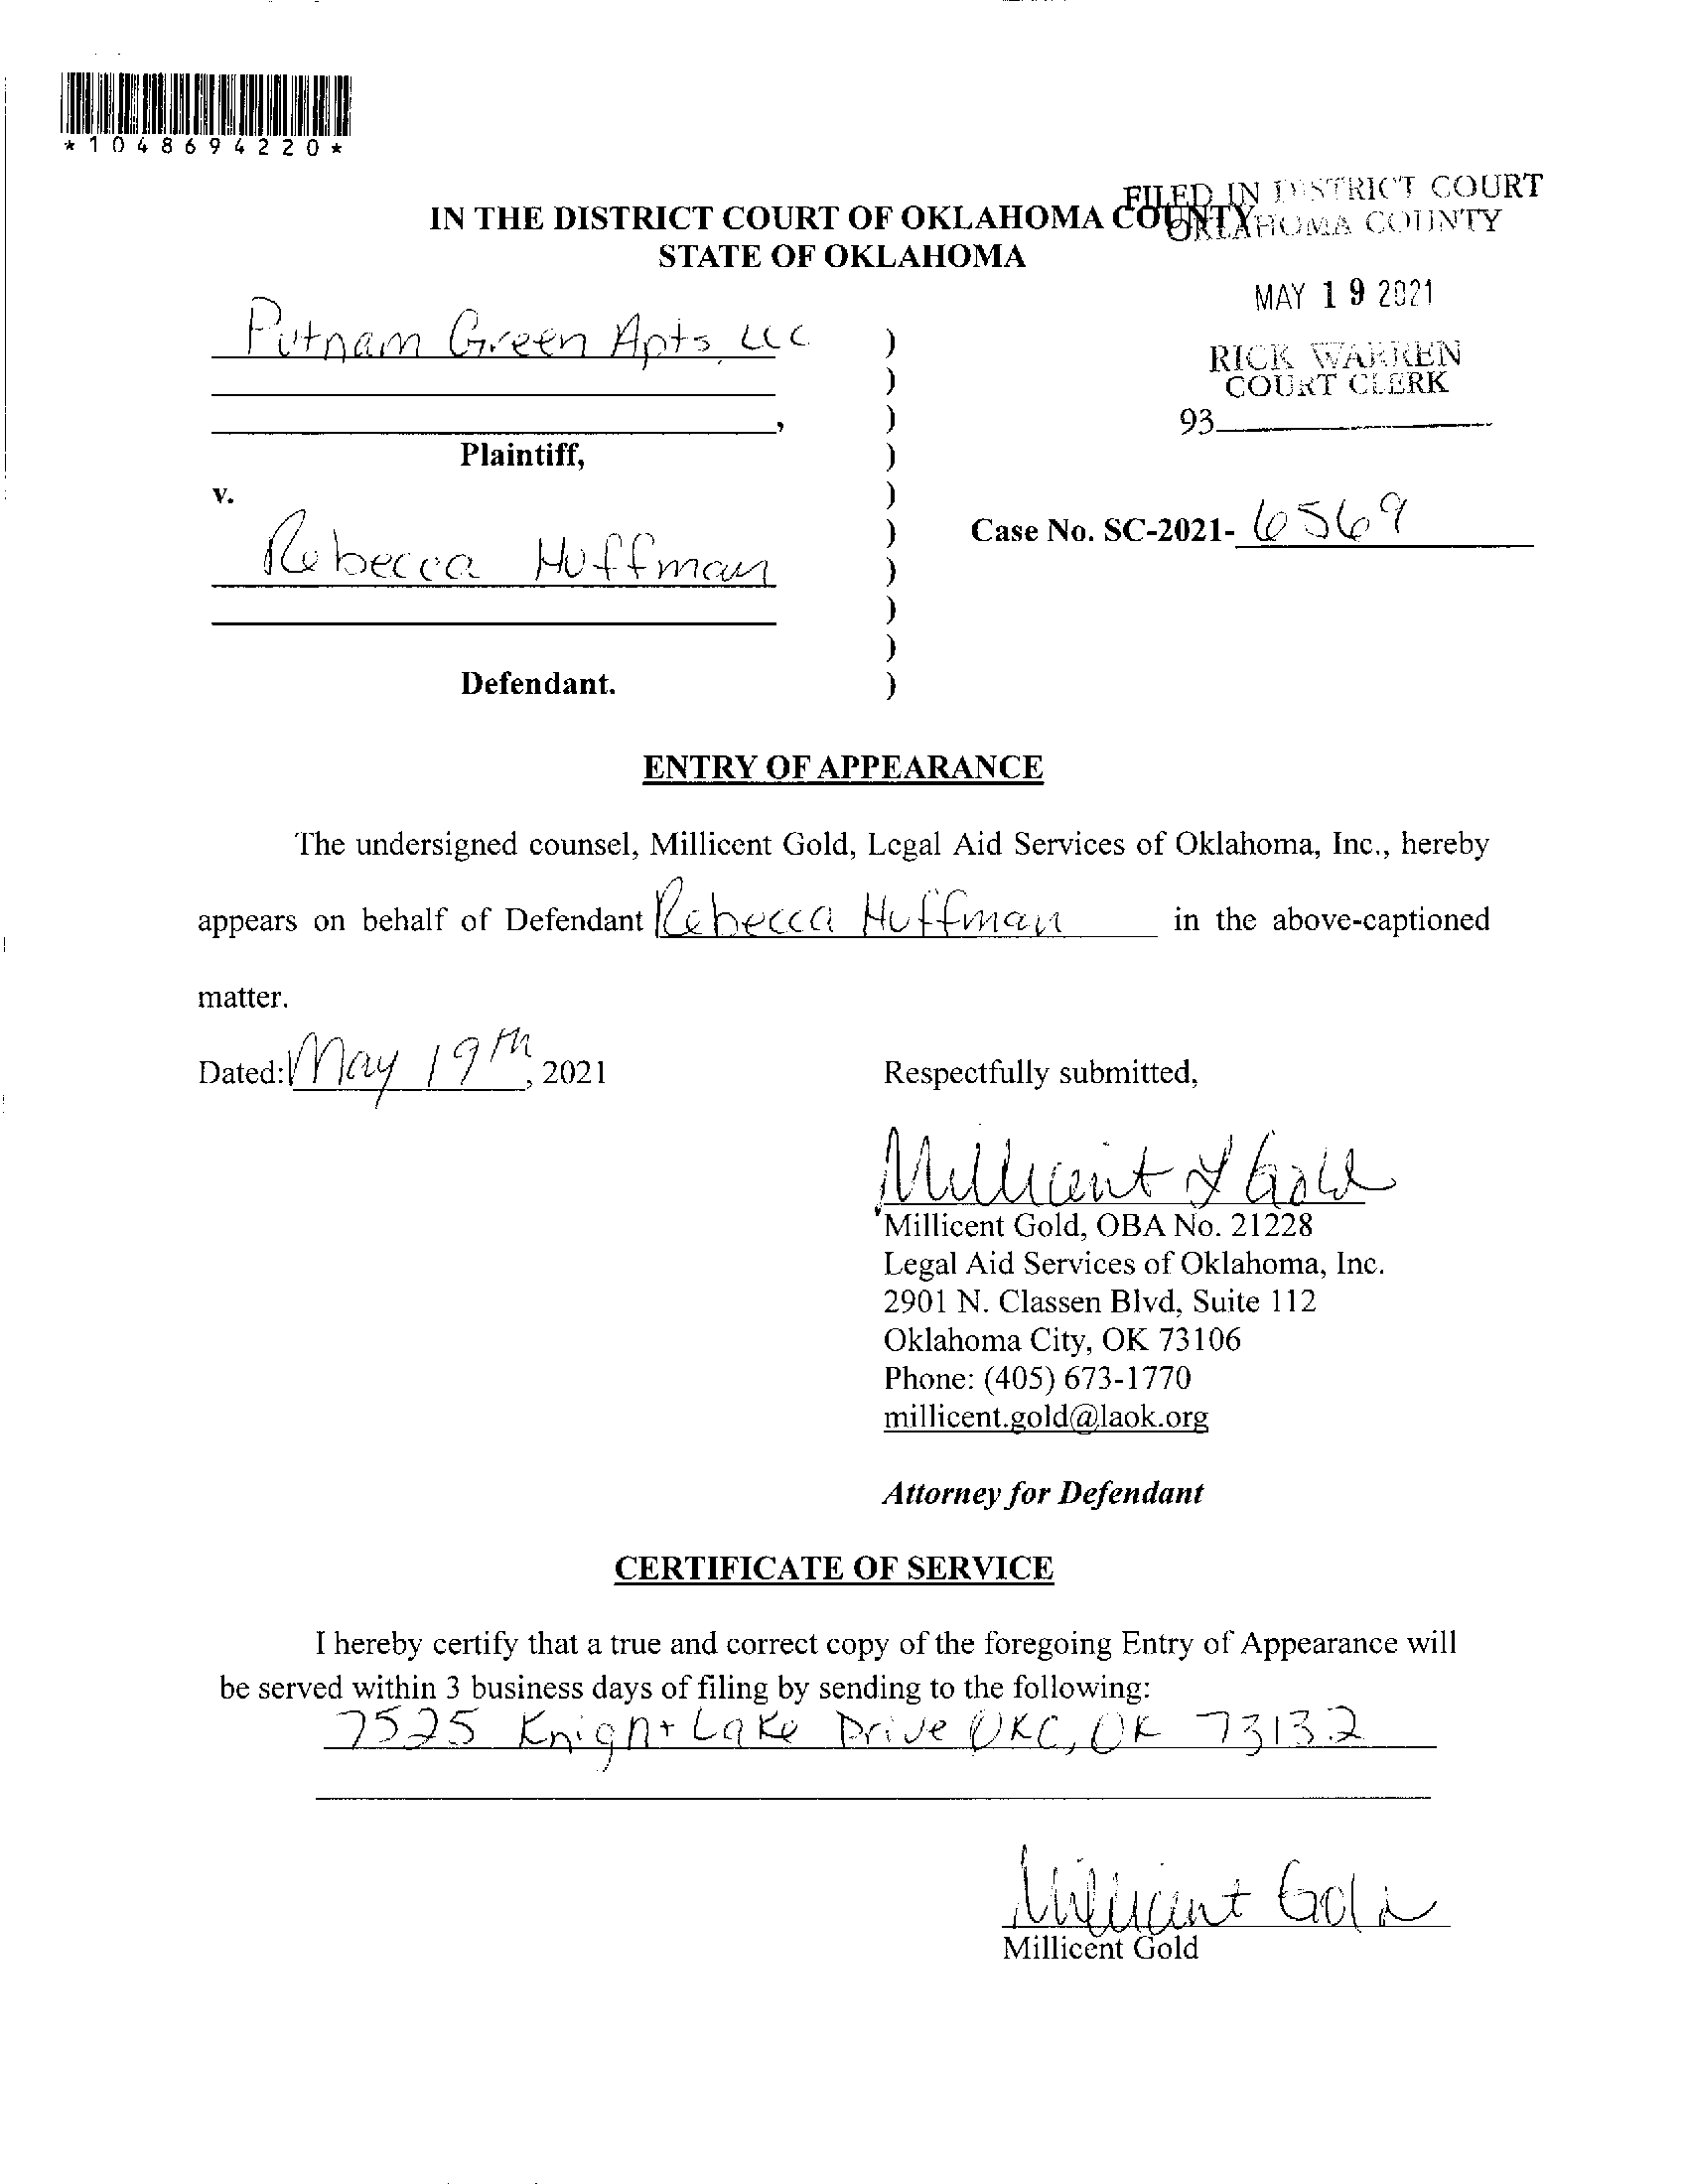 *1048694220*
FILED IN DISTRICT COURT
OKLAHOMA COUNTY
IN THE DISTRICT COURT OF OKLAHOMA COUNTY
STATE OF OKLAHOMA
MAY 19 2021
RICK WARREN
COURT CLERK
93
Putnam Green Apts, LLC )
)
, )
Plaintiff, )
v. )
Case No. SC-2021- 6569
Rebecca Huffman )
)
)
Defendant. )
ENTRY OF APPEARANCE
The undersigned counsel, Millicent Gold, Legal Aid Services of Oklahoma, Inc., hereby
appears on behalf of Defendant Rebecca Huffman in the above-captioned
matter.
Dated: May 19th, 2021
Respectfully submitted,
Millicent Y Gold
Millicent Gold, OBA No. 21228
Legal Aid Services of Oklahoma, Inc.
2901 N. Classen Blvd, Suite 112
Oklahoma City, OK 73106
Phone: (405) 673-1770
millicent.gold@laok.org
Attorney for Defendant
CERTIFICATE OF SERVICE
I hereby certify that a true and correct copy of the foregoing Entry of Appearance will
be served within 3 business days of filing by sending to the following:
7525 Knight Lake Drive OKC, OK 73132
Millicent Gold
Millicent Gold